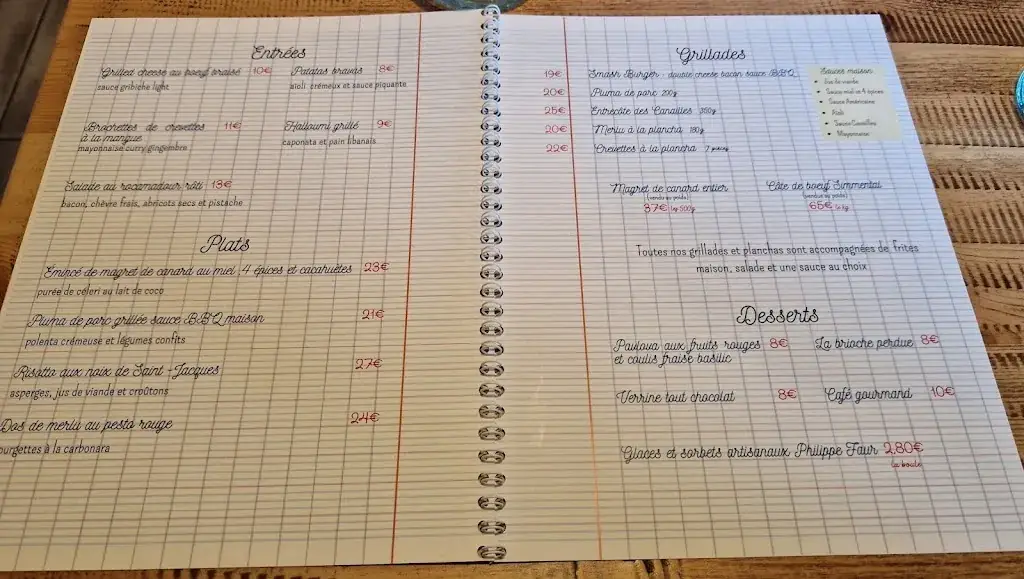 Entrées
Grilled cheese au boeuf braisé 10€
sauce gribiche light
Patatas bravas 8€
aïoli crémeux et sauce piquante
Brochettes de crevettes 11€
à la mangue
mayonnaise curry gingembre
Halloumi grillé 9€
caponata et pain libanais
Salade au rocamadour rôti 13€
bacon, chèvre frais, abricots secs et pistache
Plats
Emincé de magret de canard au miel, 4 épices et cacahuètes 23€
purée de céleri au lait de coco
Pluma de porc grillée sauce BBQ maison 21€
polenta crémeuse et légumes confits
Risotto aux noix de Saint-Jacques 27€
asperges, jus de viande et croûtons
Dos de merlu au pesto rouge 24€
ourgettes à la carbonara
Grillades
19€ Smash Burger : double cheese bacon sauce BBQ
20€ Pluma de porc 200g
25€ Entrecôte des Canailles 350g
20€ Merlu à la plancha 180g
22€ Crevettes à la plancha 7 pièces
Sauces maison
Jus de viande
Sauce miel et 4 épices
Sauce Américaine
Aïoli
Sauce Canailles
Mayonnaise
Magret de canard entier
(vendu au poids)
37€ les 500g
Côte de boeuf Simmental
(vendue au poids)
65€ le kg
Toutes nos grillades et planchas sont accompagnées de frites
maison, salade et une sauce au choix
Desserts
Pavlova aux fruits rouges 8€
et coulis fraise basilic
La brioche perdue 8€
Verrine tout chocolat 8€
Café gourmand 10€
Glaces et sorbets artisanaux Philippe Faur 2,80€
la boule